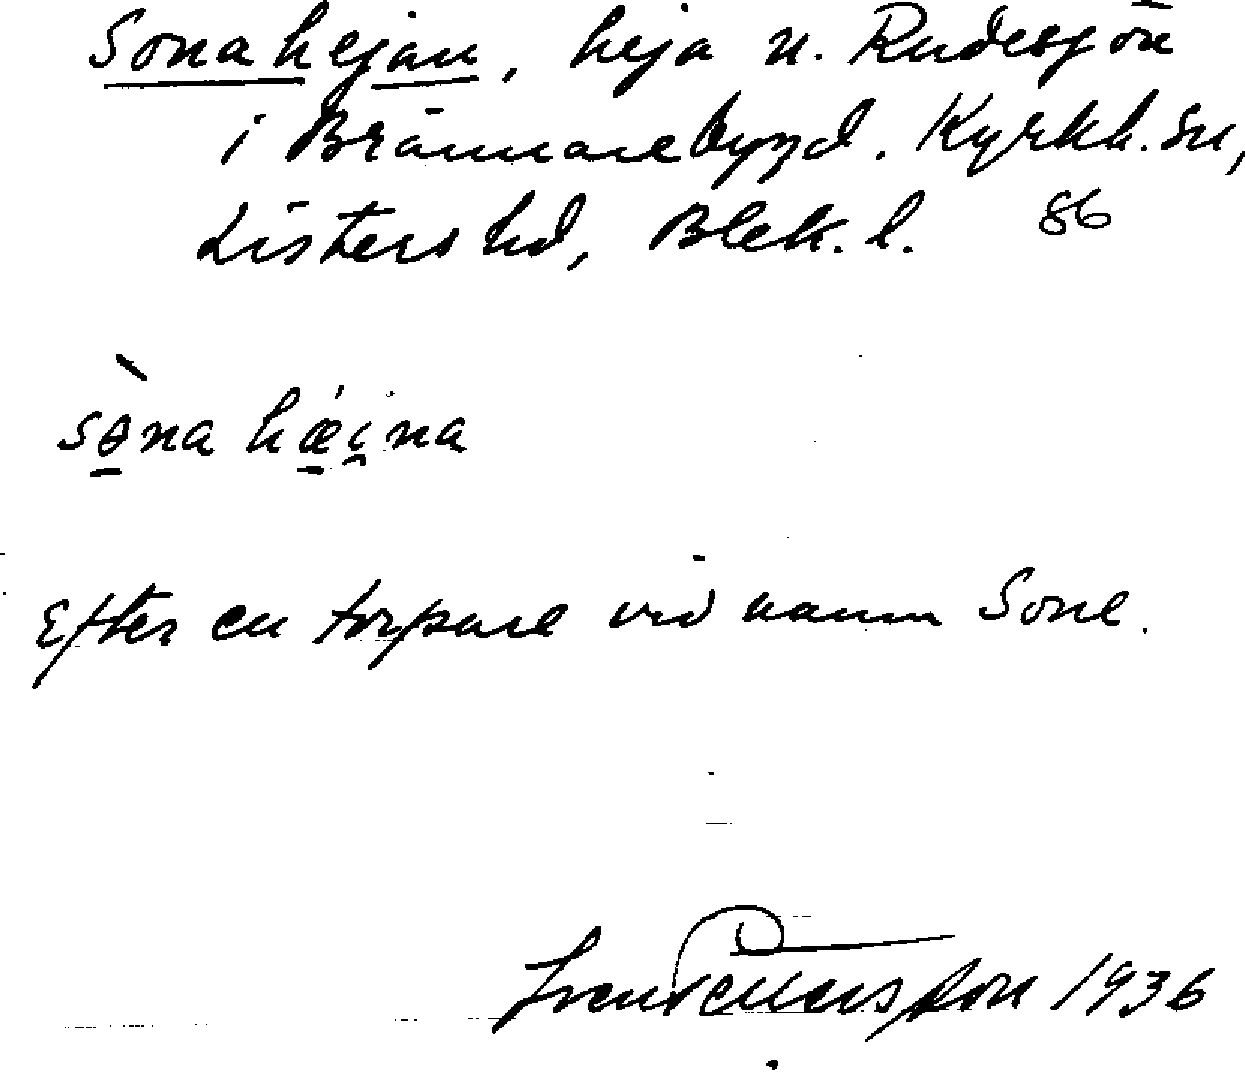 Sonahejan, heja n. Rudesjön
i Brännarebygd. Kyrkh. sn,
Listers hd, Blek. l. 86
sɵ̀na hǽi̯na
Efter en torpare vid namn Sone.
1936